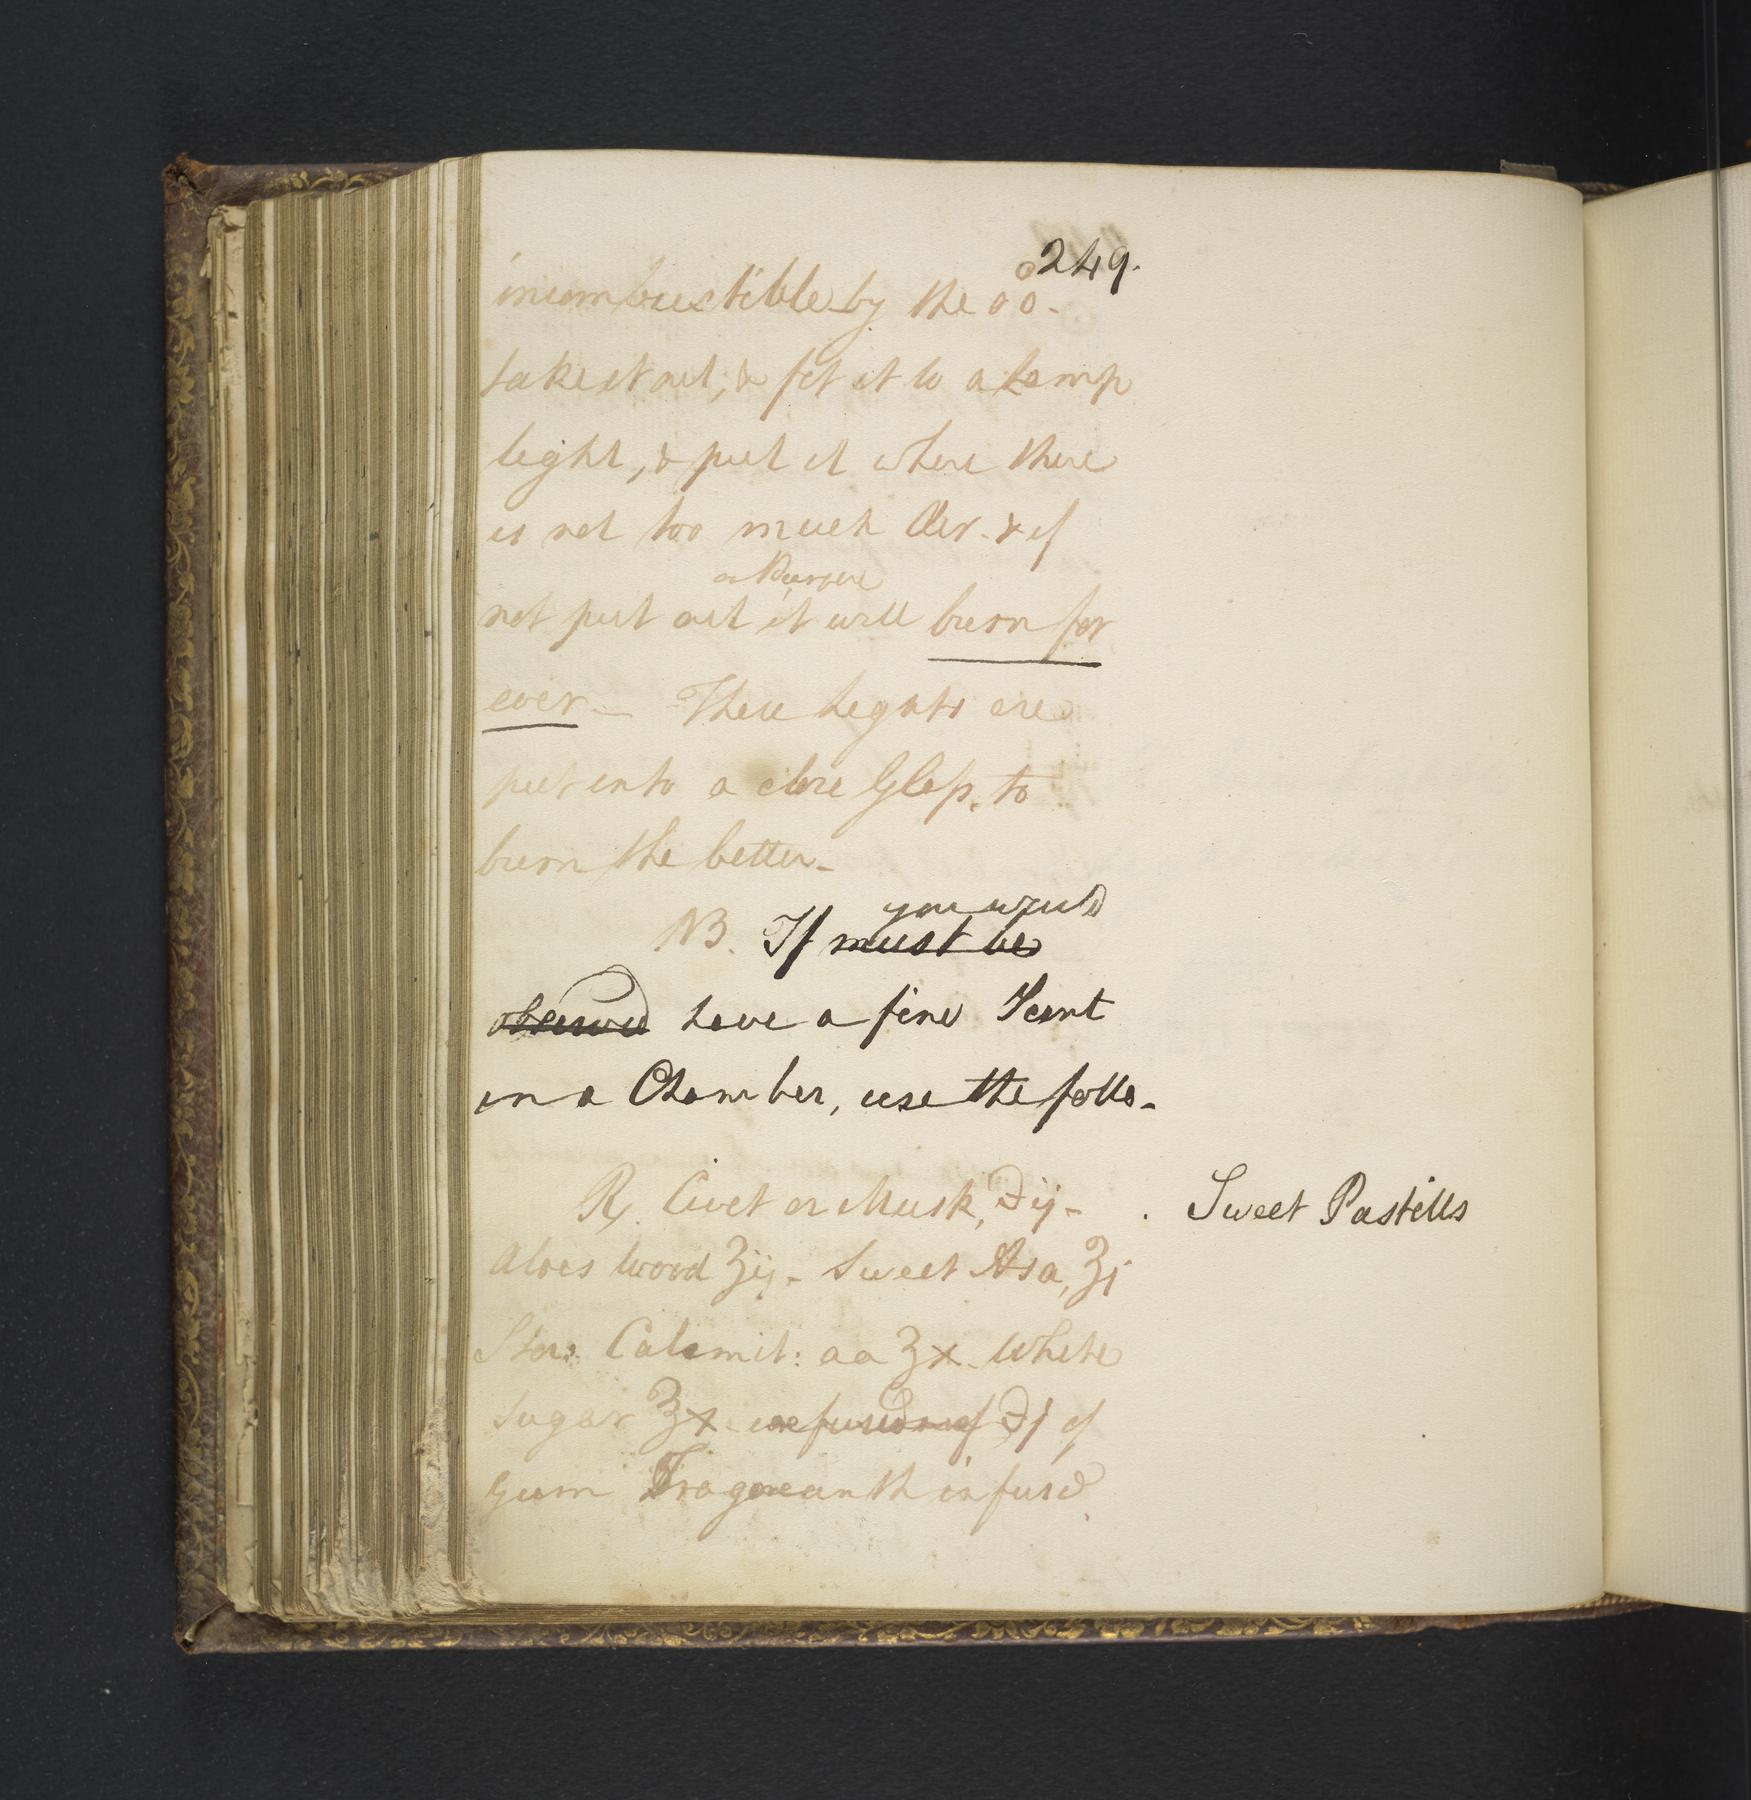 249.
incombustible by the o°o.
take it out, & set it to a Lamp
light, & put it where there
is not too much Air. & if
not put out it will burn for
ever_ These Legnts are
put into a close Glass, to
burn the better_
you would
NB. If must be
observed have a fine Scent
in a Chamber, use the follo_
℞. Civet or Musk, ℈ij_ . Sweet Pastills
Aloes wood ʒij_ Sweet Asa, ʒj
Stor: Calamit: aa ʒx_ White
Sugar ʒx ℈j of
Gum Tragacanth infused